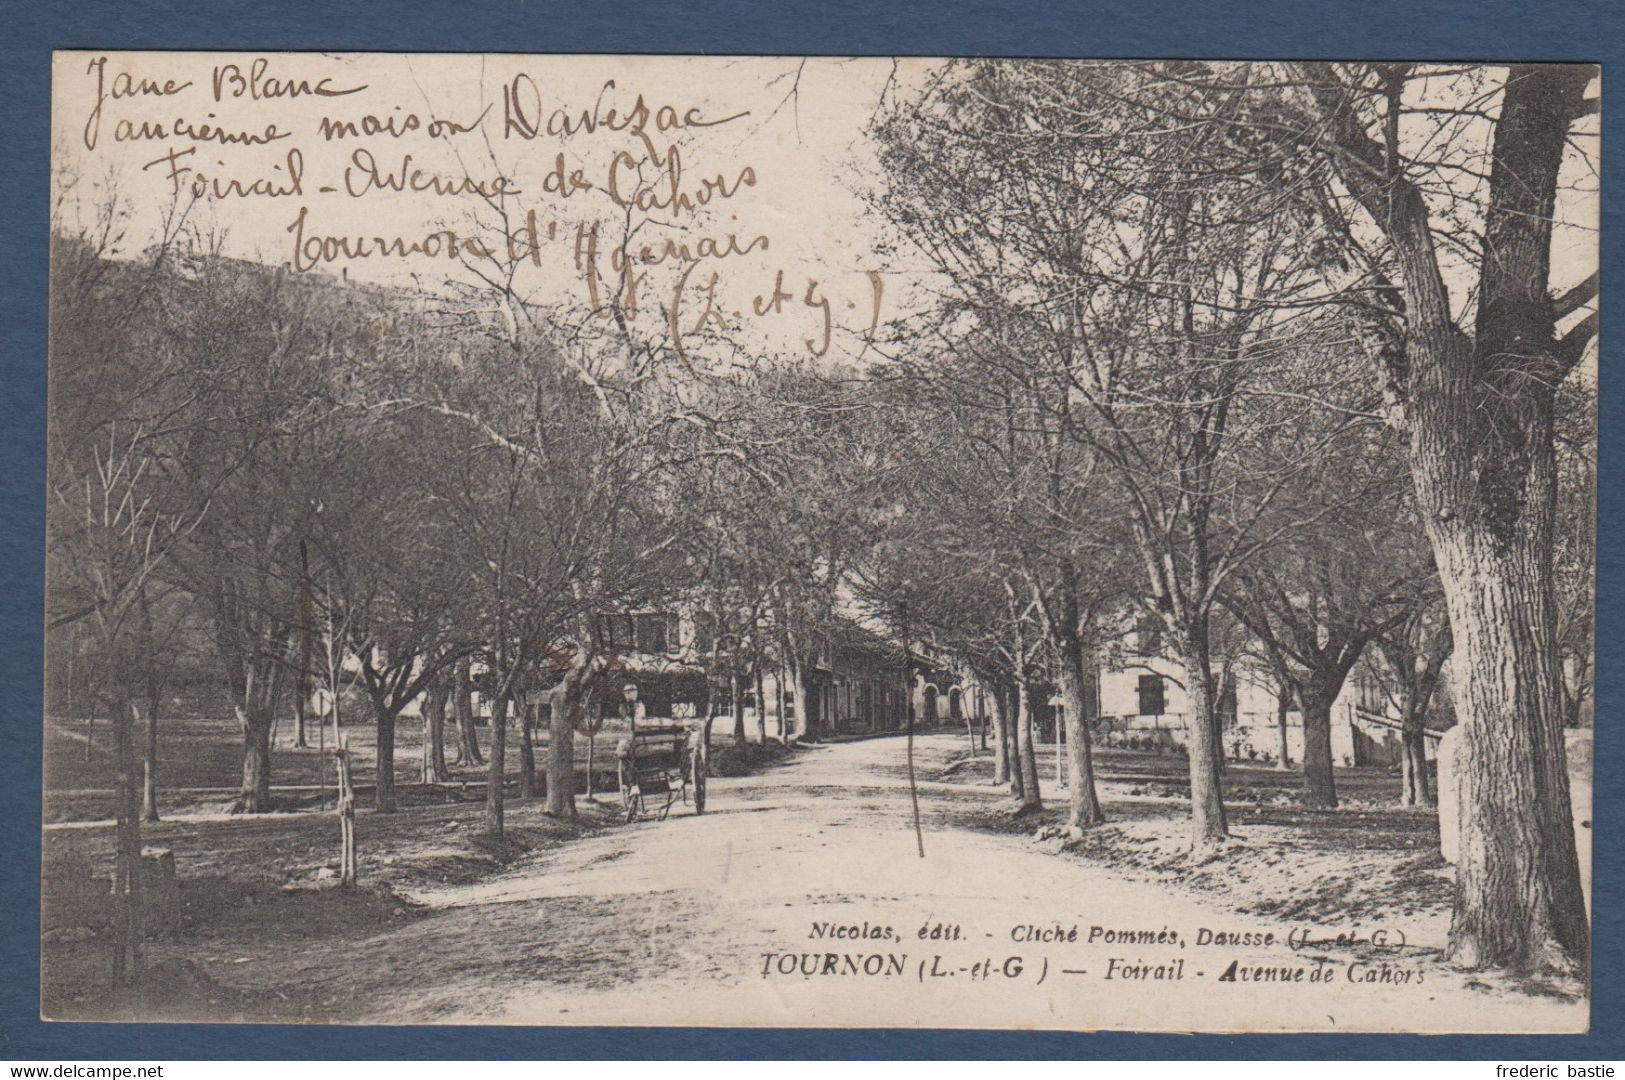 Jane Blanc
ancienne maison Davezac
Foirail - Avenue de Cahors
Tournon d'Agenais
(L. et G.)
Nicolas, édit. - Cliché Pommés, Dausse (L.-et-G.)
TOURNON (L.-et-G ) — Foirail - Avenue de Cahors
www.delcampe.net
frederic bastie